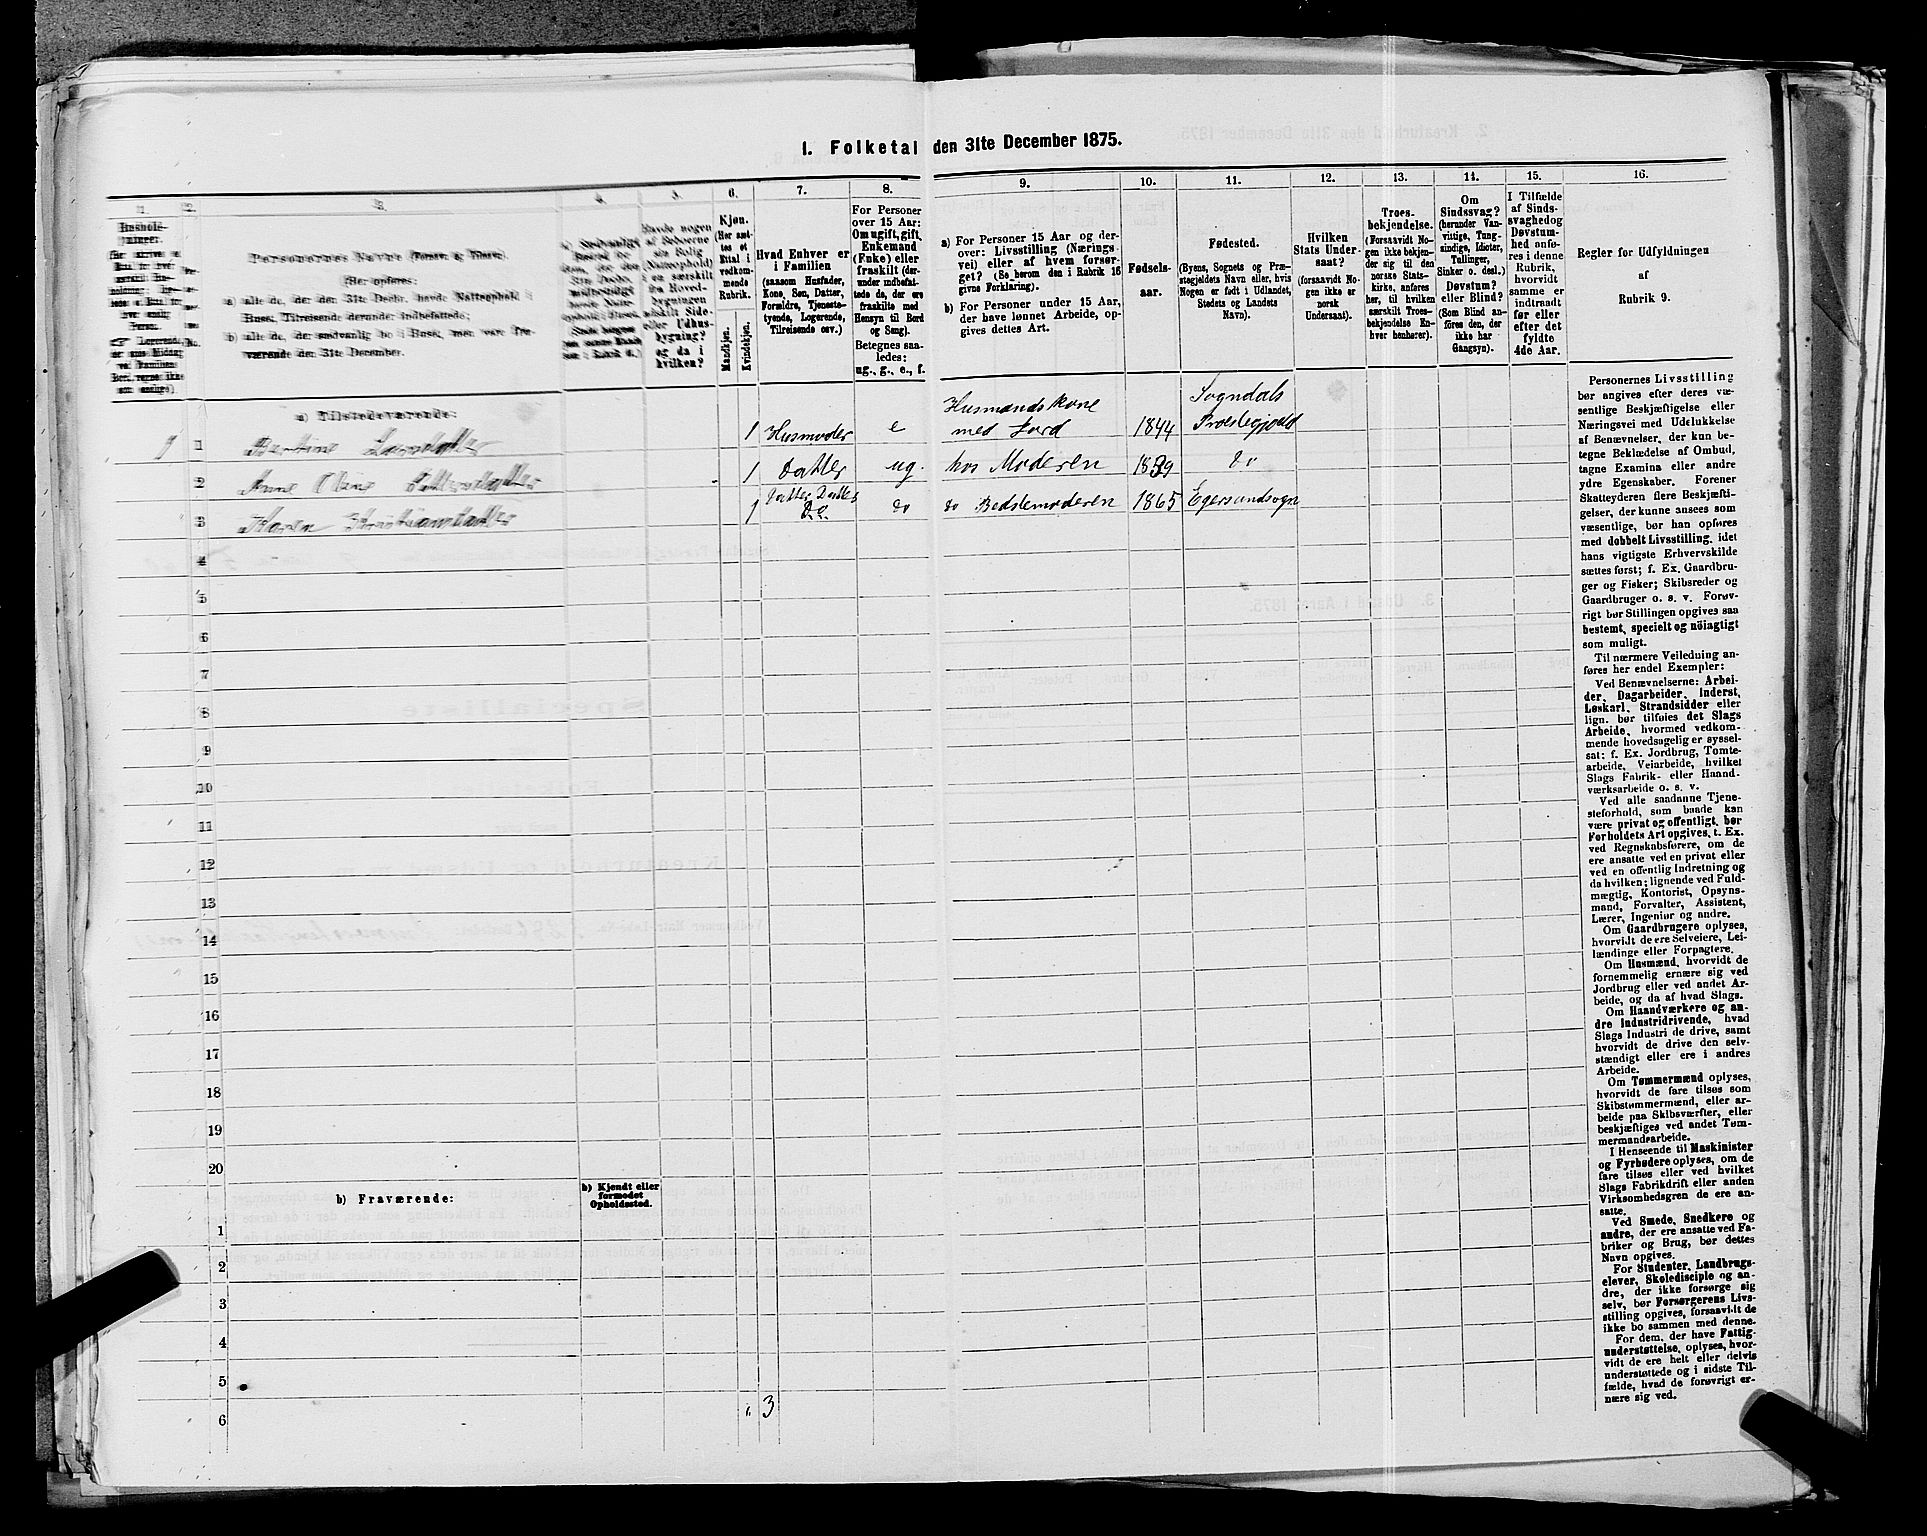 1. Folketal den 31te December 1875.
1.
2.
3.
4.
5.
6.
7.
8.
9.
10.
11.
12.
13.
14.
15.
16.
Personernes Navne (Fornavn og Tilnavn).
(Her opføres:
a) alle de, der den 31te Decbr. havde Natteophold i
Huset, Tilreisende derunder indbefattede;
b) alle de, der sædvanlig bo i Huset, men vare fra-
værende den 31te December.
Havde nogen
af Beboerne
sin Bolig
(Natteophold)
i en særskilt
fra Hoved-
bygningen
adskilt Side-
eller Udhus-
bygning?
og da i
hvilken?
Kjøn.
(Her sæt-
tes et
Ettal i
vedkom-
mende
Rubrik.
Mandkjøn.
Kvindekjøn.
Hvad Enhver er
i Familien
(saasom Husfader,
Kone, Søn, Datter,
Forældre, Tjeneste-
tyende, Logerende,
Tilreisende osv.)
For Personer
over 15 Aar:
Om ugift, gift,
Enkemand
(Enke) eller
fraskilt (der-
under indbefat-
tede de, der ere
fraskilte med
Hensyn til Bord
og Seng).
Betegnes saa-
ledes:
ug., g., e., f.
a) For Personer 15 Aar og der-
over: Livsstilling (Nærings-
vei) eller af hvem forsør-
get? (Se herom den i Rubrik 16
givne Forklaring).
b) For Personer under 15 Aar,
der have lønnet Arbeide, op-
gives dettes Art.
Fødsels-
aar.
Fødested.
(Byens, Sognets og Præ-
stegjeldets Navn eller, hvis
Nogen er født i Udlandet,
Stedets og Landets
Navn).
Hvilken
Stats Under-
saat?
(forsaavidt No-
gen ikke er
norsk
Undersaat).
Troes-
bekjendelse.
(Forsaavidt No-
gen ikke bekjen-
der sig til den
norske Stats-
kirke, anføres
her, til hvilken
særskilt Troes-
bekjendelse En-
hver henhører).
Om
Sindssvag?
(herunder Van-
vittige, Tung-
sindige, Idioter,
Tullinger,
Sinker o. desl.)
Døvstum?
eller Blind?
(Som Blind an-
føres den, der
ikke har
Gangsyn).
I Tilfælde
af Sinds-
svaghed og
Døvstum-
hed anfø-
res i denne
Rubrik,
hvorvidt
samme er
indtraadt
før eller
efter det
fyldte
4de Aar.
Regler for Udfyldningen
af
Rubrik 9.
a) Tilstedeværende:
1 1 Bertine Larsdatter 1 Husmoder e Husmandskone med Jord 1844 Sogndals Præstegjeld
2 Anne Oline 1 Datter ug. hos Moderen 18 9 do
3 Karen Kristiansdatter 1 Datter Datter do do Bedstemoderen 1865 Egersundsogn
4
5
6
7
8
9
10
11
12
13
14
15
16
17
18
19
20
b) Fraværende:
b) Kjendt eller
formodet
Opholdssted.
1
2
3
4
5
6
3
Personernes Livsstilling
bør angives efter deres væ-
sentlige Beskjæftigelse eller
Næringsvei med Udelukkelse
af Benævnelser, der kun be-
tegne Beklædelse af Ombud,
tagne Examina eller andre
ydre Egenskaber. Forener
Skatteyderen flere Beskjæfti-
gelser, der kunne ansees som
væsentlige, bør han opføres
med dobbelt Livsstilling, idet
hans vigtigste Erhvervskilde
sættes først; f. Ex. Gaardbru-
ger og Fisker; Skibsreder og
Gaardbruger o. s. v. Forøv-
rigt bør Stillingen opgives saa
bestemt, specielt og nöiagtigt
som muligt.
Til nærmere Veiledning an-
føres her endel Exempler:
Ved Benævnelserne: Arbei-
der, Dagarbeider, Inderst,
Løskarl, Strandsidder eller
lign. bør tilføies det Slags
Arbeide, hvormed vedkom-
mende hovedsagelig er syssel-
sat; f. Ex. Jordbrug, Tomte-
arbeide, Veiarbeide, hvilket
Slags Fabrik- eller Haand-
værksarbeide o. s. v.
Ved alle saadanne Tjene-
steforhold, som baade kan
være privat og offentligt, bør
Forholdets Art opgives, t. Ex.
ved Regnskabsførere, om de
ere ansatte ved en privat eller
ved en offentlig Indretning og
da hvilken; lignende ved Fuld-
mægtig, Kontorist, Opsyns-
mand, Forvalter, Assistent,
Lærer, Ingeniør og andre.
Om Gaardbrugere oplyses,
hvorvidt de ere Selveiere, Lei-
lændinge eller Forpagtere.
Om Husmænd, hvorvidt de
fornemmelig ernære sig ved
Jordbrug eller ved andet Ar-
beide, og da af hvad Slags.
Om Haandværkere og an-
dre Industridrivende, hvad
Slags Industri de drive, samt
hvorvidt de drive den selv-
stændigt eller ere i andres
Arbeide.
Om Tømmermænd oplyses,
hvorvidt de fare tilsøs som
Skibstømmermænd, eller ar-
beide paa Skibsværfter, eller
beskjæftiges ved andet Tøm-
mermandsarbeide.
I Henseende til Maskinister
og Fyrbødere oplyses, om de
fare tilsøs eller ved hvilket
Slags Fabrikdrift eller anden
Virksomhedsgren de ere an-
satte.
Ved Smede, Snedkere og
andre, der ere ansatte ved Fa-
briker og Brug, bør dettes
Navn opgives.
For Studenter, Landbrugs-
elever, Skoledisciple og an-
dre, der ikke forsørge sig
selv, bør Forsørgerens Livs-
stilling opgives, forsaavidt de
ikke bo sammen med denne.
For dem, der have Fattig-
understøttelse, oplyses, hvor-
vidt de ere helt eller delvis
understøttede og i sidste Til-
fælde, hvad de forøvrigt er-
nære sig ved.